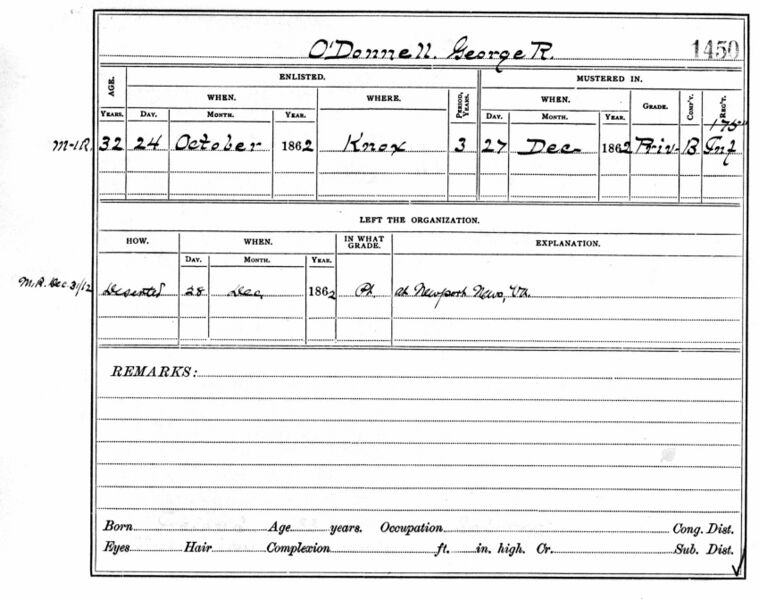 O'Donnell, George R. 1450
AGE. ENLISTED. MUSTERED IN.
WHEN. WHERE. PERIOD, YEARS. WHEN. GRADE. COMP'Y. REG'T.
YEARS. DAY. MONTH. YEAR. DAY. MONTH. YEAR.
175"
M-I R. 32 24 October 1862 Knox 3 27 Dec- 1862 Priv- B Inf
LEFT THE ORGANIZATION.
HOW. WHEN. IN WHAT GRADE. EXPLANATION.
DAY. MONTH. YEAR.
M.R. Dec. 31/62 Deserted 28 Dec, 1862 at Newport News, Va.
REMARKS:
Born Age years. Occupation Cong. Dist.
Eyes Hair Complexion ft. in. high. Cr. Sub. Dist.